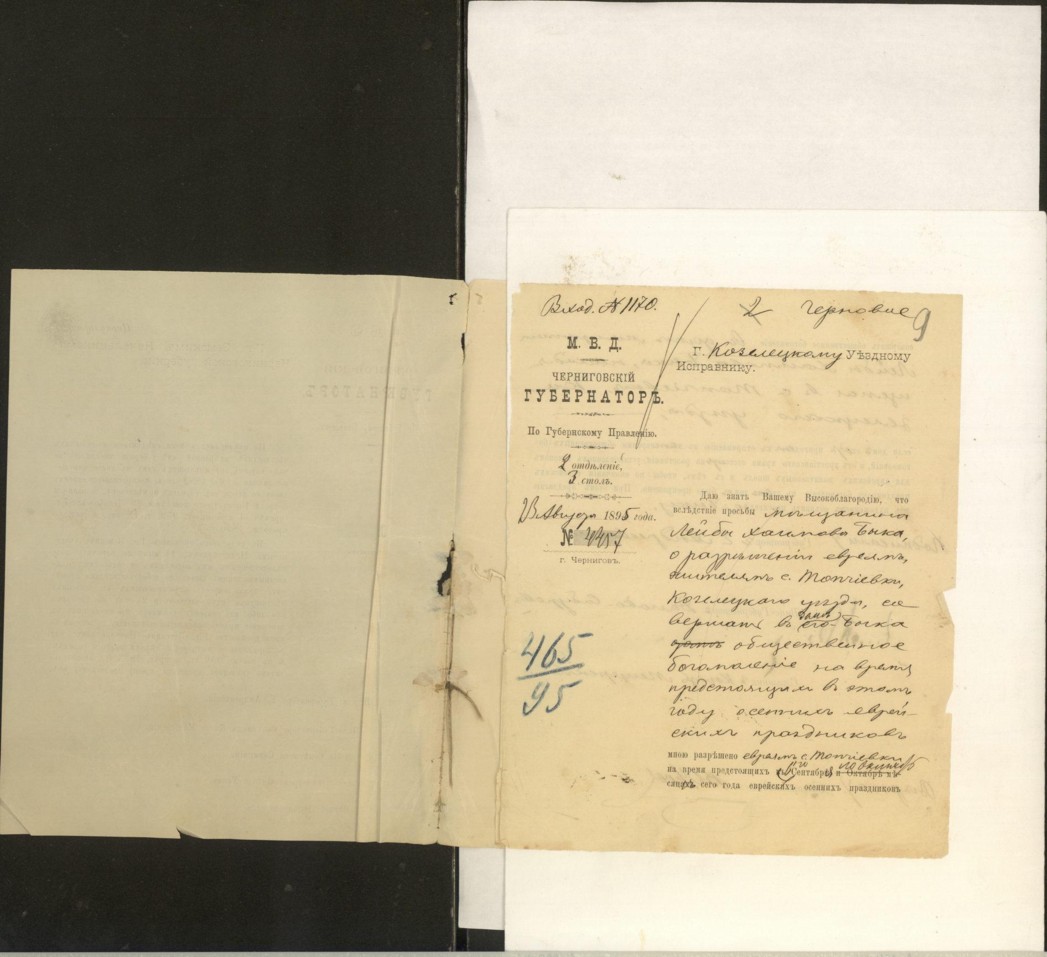 Вход. № 1170.
2 черновые 9
М. В. Д.
ЧЕРНИГОВСКІЙ
ГУБЕРНАТОРЪ.
По Губернскому Правленію.
2 отдѣленіе,
3 столъ.
23 Августа 1895 года.
№ 4957
г. Черниговъ.
465
95
Г. Козелецкому Уѣздному
Исправнику.
Даю знать Вашему Высокоблагородію, что
вслѣдствіе просьбы мѣщанина
Лейбы Хаимова Быка,
о разрѣшеніи евреямъ,
жителямъ с. Топчіевки,
Козелецкаго уѣзда, со
вершать въ его Быка
домѣ
общественное
богомоленіе на время
предстоящихъ въ этомъ
году осеннихъ еврей-
скихъ праздниковъ
мною разрѣшено евреямъ с. Топчіевки
на время предстоящихъ въ Сентябрѣ и Октябрѣ мѣ-
сяцѣ сего года еврейскихъ осеннихъ праздниковъ